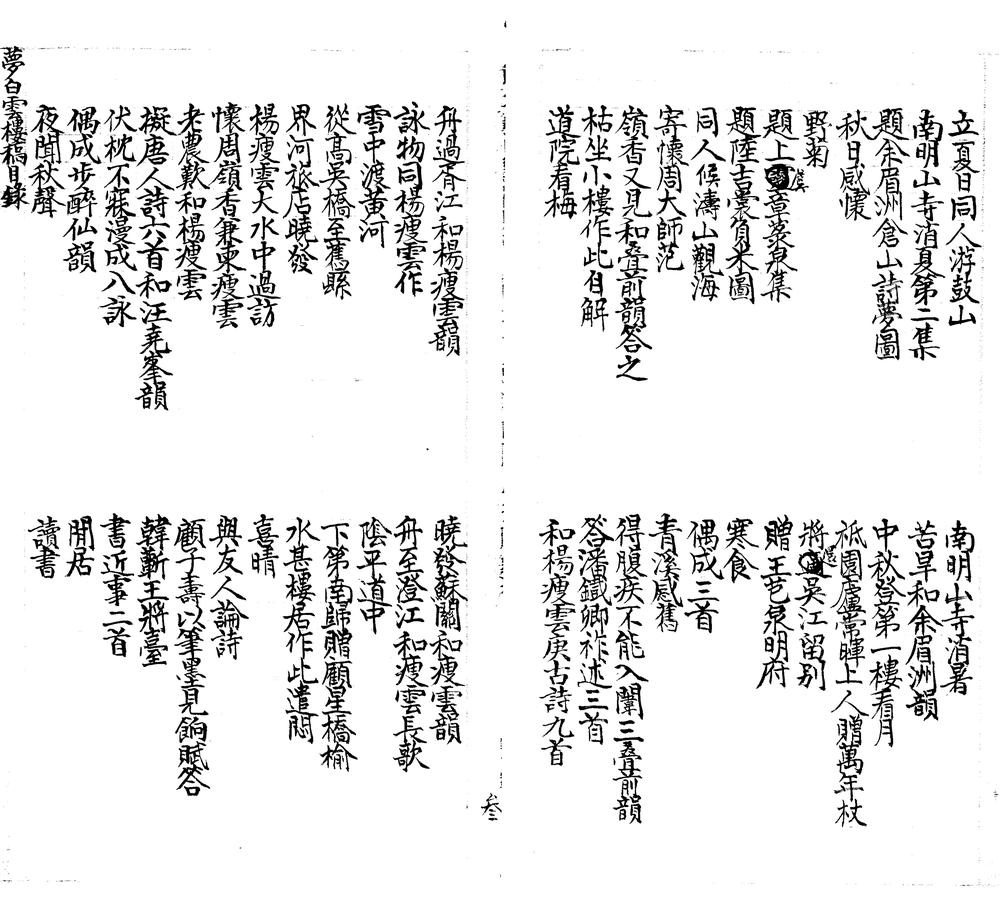 立夏日同人游鼓山
南明山寺消暑
南明山寺消夏第二集
苦旱和余眉洲韻
題余眉洲倉山詩夢圖
中秋登第一樓看月
秋日感懷
祗園廬常暉上人贈萬年杖
野菊
將還吳江留別
題上虞章菉泉集
贈王芑泉明府
題陸吉裳負米圖
寒食
同人候濤山觀海
偶成三首
寄懷周大師范
青溪感舊
嶺香又見和叠前韻答之
得腹疾不能入闈三叠前韻
枯坐小樓作此自解
答潘鐵卿祚述三首
道院看梅
和楊瘦雲庚古詩九首
叁
舟過胥江和楊瘦雲韻
曉發蘇關和瘦雲韻
詠物同楊瘦雲作
舟至澄江和瘦雲長歌
雪中渡黄河
陰平道中
從高吳橋至舊縣
下第南歸贈顧星橋榆
界河旅店曉發
水甚樓居作此遣悶
楊瘦雲大水中過訪
喜晴
懷周嶺香兼柬瘦雲
與友人論詩
老農歎和楊瘦雲
顧子壽以筆墨見餉賦答
擬唐人詩六首和汪堯峯韻
韓蘄王將臺
伏枕不寐漫成八詠
書近事二首
偶成步醉仙韻
閒居
夜聞秋聲
讀書
夢白雲樓稿目錄